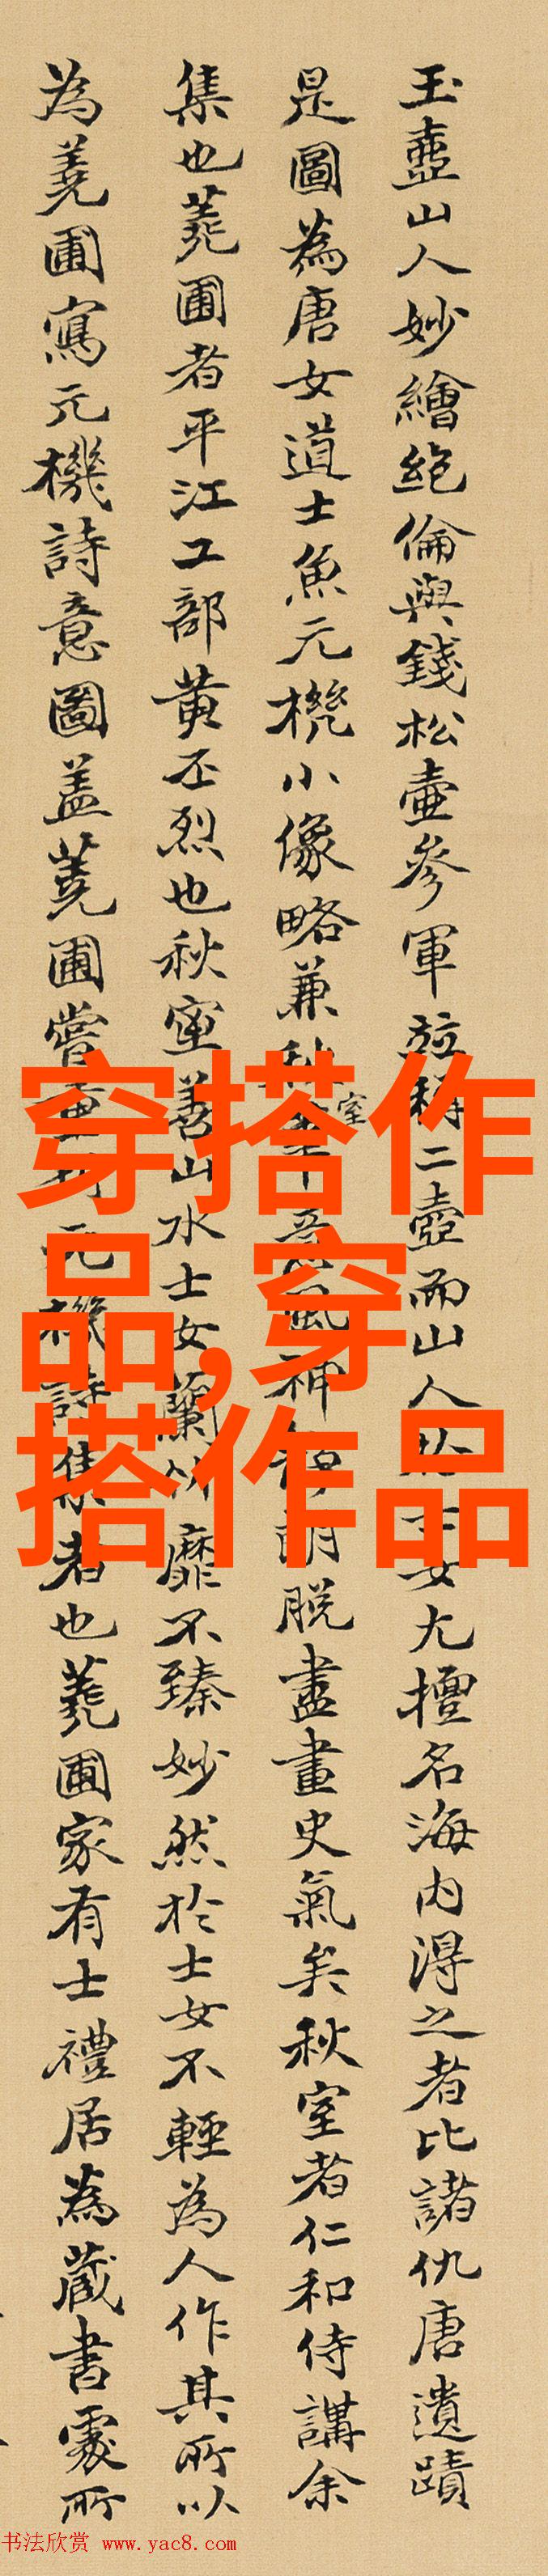 玉壺山人妙繪絶倫與錢松壺參軍竝稱二壺而山人女尤擅名海内得之者比諸仇唐遺蹟
是圖為唐女道士魚元機小像略兼秋室神朗脱盡畫史氣矣秋室者仁和侍講余
集也蕘圃者平江工部黄丕烈也秋室善山水士女蘭竹靡不臻妙然於士女不輕為人作其所以
為蕘圃寫元機詩意圖盖蕘圃嘗元機詩集者也蕘圃家有士禮居為蔵書處所
穿搭作
品,穿
搭作品
书法欣赏 www.yac8.com